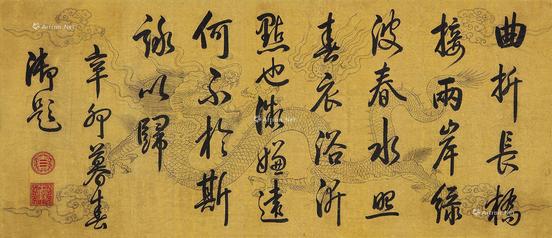 曲折长橋
接兩岸緑
波春水照
春衣浴沂
點也激嫌遠
何不於斯
詠以歸
辛卯暮春
御題